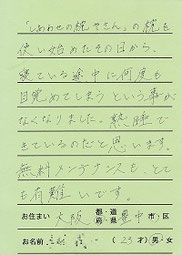 「しあわせの枕やさん」の枕を
使い始めたその日から、
寝ている途中に何度も
目覚めてしまうという事が
なくなりました。熟睡で
きているのだと思います。
無料メンテナンスも、とて
も有難いです。
お住まい 大阪 都・道・府・県 豊中 市・区
お名前 様 (23才) 男・女